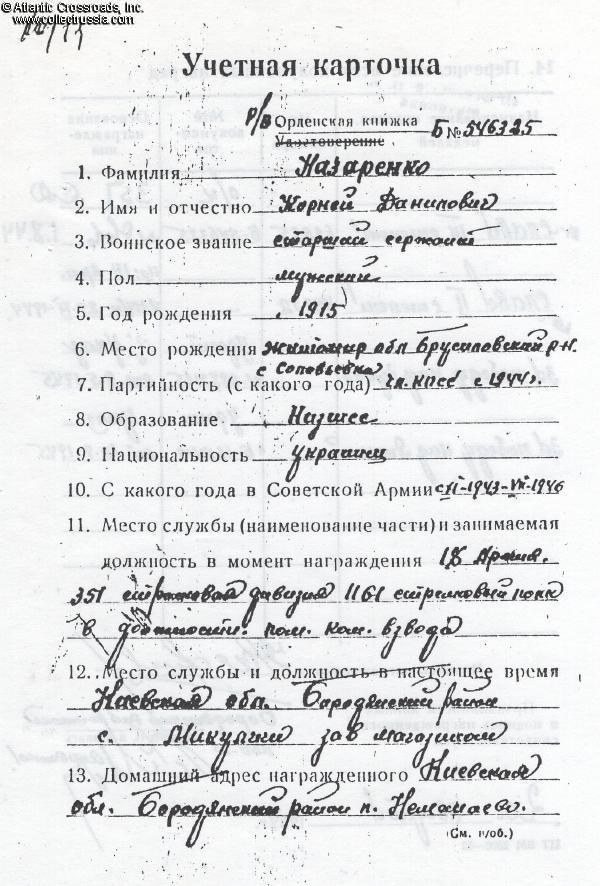 © Atlantic Crossroads, Inc.
www.collectrussia.com
Учетная карточка
Р/В Орденская книжка Б № 546325
Удостоверение
1. Фамилия Назаренко
2. Имя и отчество Корней Данилович
3. Воинское звание старший сержант
4. Пол мужский
5. Год рождения 1915
6. Место рождения Житомир обл Брусиловский р-н.
с Соловьевка
7. Партийность (с какого года) чл. КПСС с 1944г.
8. Образование Низшее
9. Национальность украинец
10. С какого года в Советской Армии с XI-1943-VII-1946
11. Место службы (наименование части) и занимаемая
должность в момент награждения 18 Армия.
351 стрелковая дивизия 1161 стрелковый полк
в должности. пом. ком. взвода
12. Место службы и должность в настоящее время
Киевская обл. Бородянский район
с. Микуличи зав магазином
13. Домашний адрес награжденного Киевская
обл. Бородянский район п. Немешаево.
(См. н/об.)